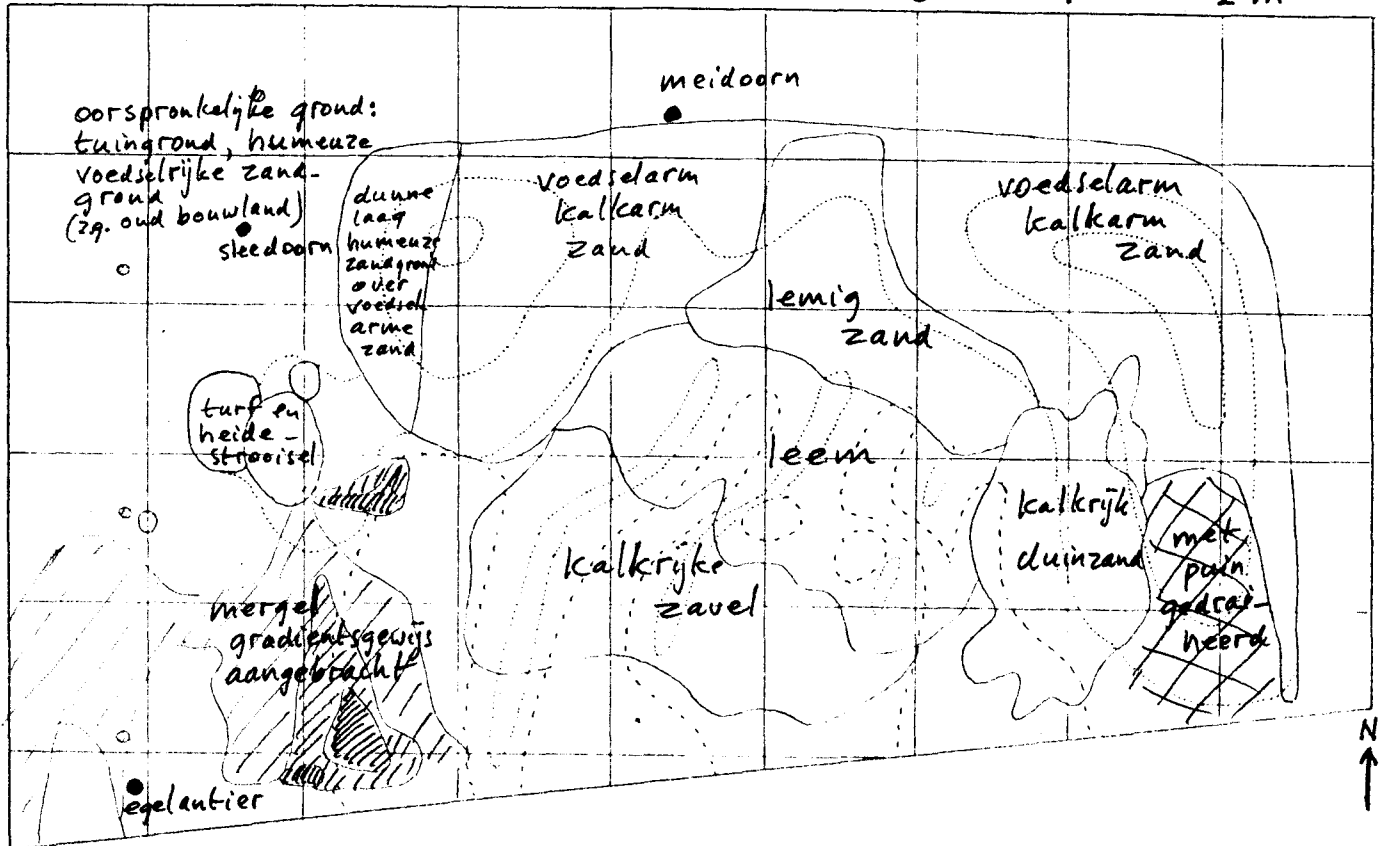 meidoorn
oorspronkelijke grond:
tuingrond, humeuze
voedselrijke zand-
grond
(zg. oud bouwland)
sleedoorn
dunne
laag
humeuze
zandgrond
over
voedsel-
arme
zand
voedselarm
kalkarm
zand
voedselarm
kalkarm
zand
lemig
zand
turf en
heide-
strooisel
leem
kalkrijke
zavel
kalkrijk
duinzand
met
puin
gedrai-
neerd
mergel
gradientsgewijs
aangebracht
egelantier
N